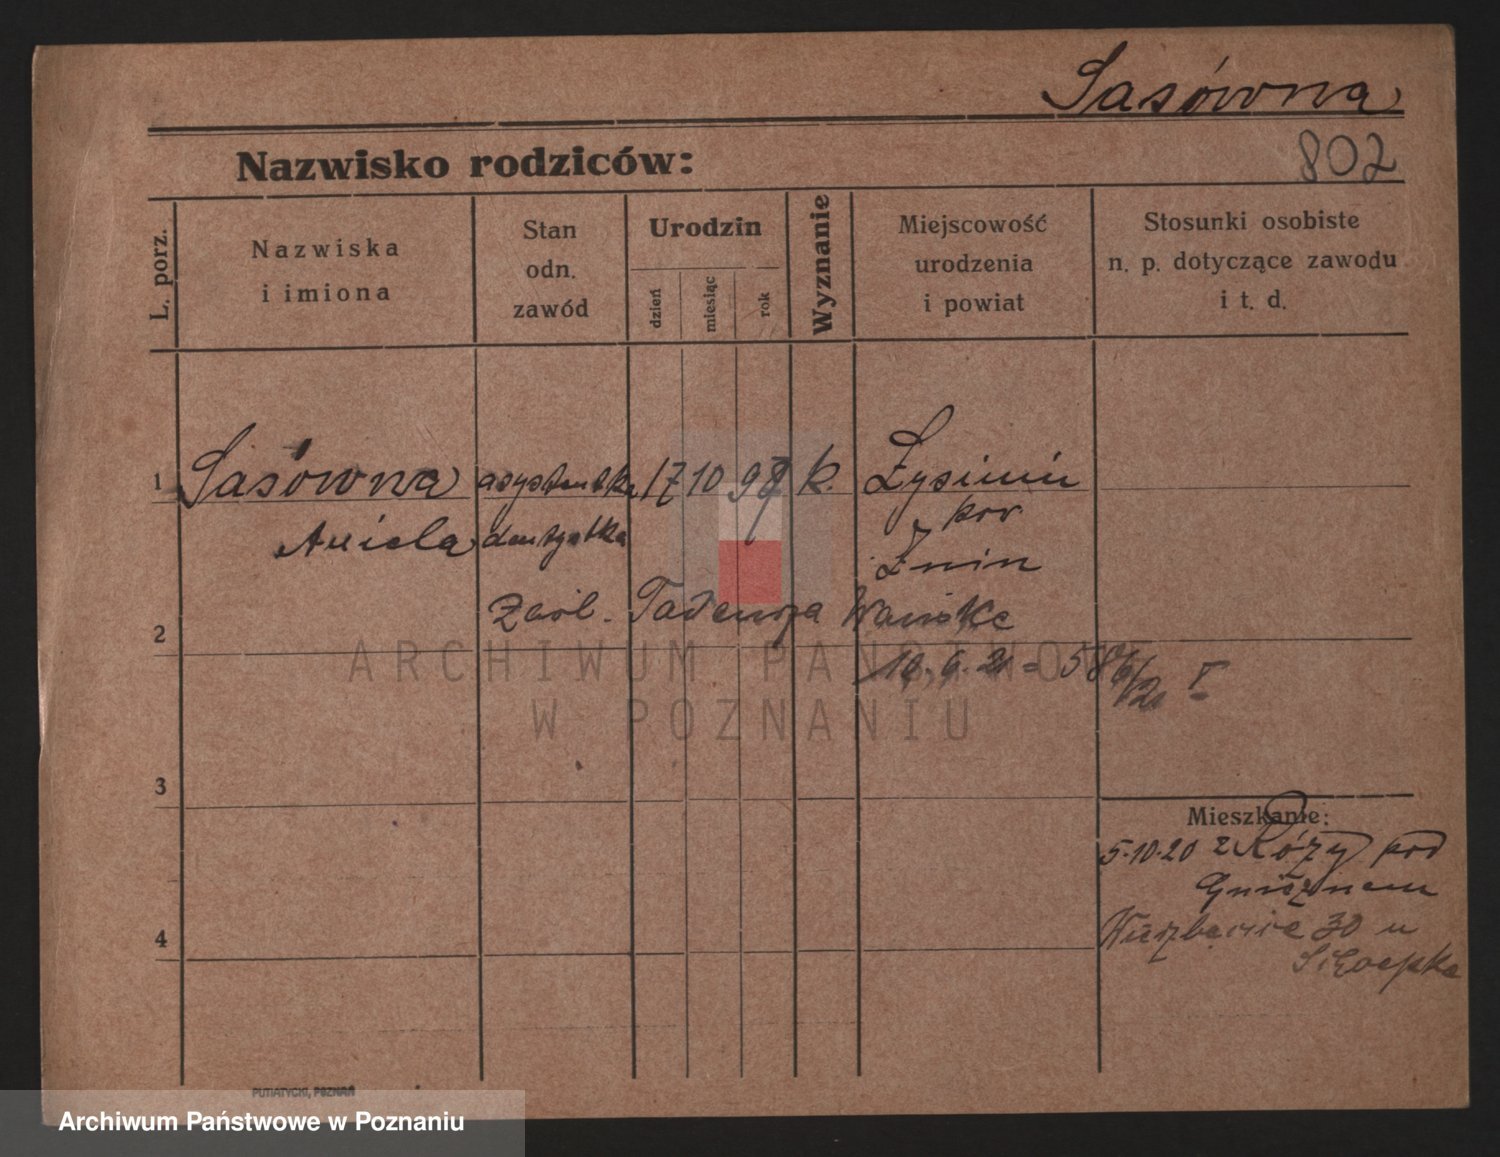 Sasówna
802
Nazwisko rodziców:
L. porz.
Nazwiska
i imiona
Stan
odn.
zawód
Urodzin
dzień
miesiąc
rok
Wyznanie
Miejscowość
urodzenia
i powiat
Stosunki osobiste
n. p. dotyczące zawodu
i t. d.
1 Sasówna asystentka 17 10 97 k.
Aniela dentystka
pow
Żnin
2 Tadeusza
10.6.21
3
Mieszkanie:
5.10.20 z Róży pod
Gnieznem
4
30 u
PUTIATYCKI, POZNAŃ
ARCHIWUM PAŃSTWOWE
W POZNANIU
Archiwum Państwowe w Poznaniu